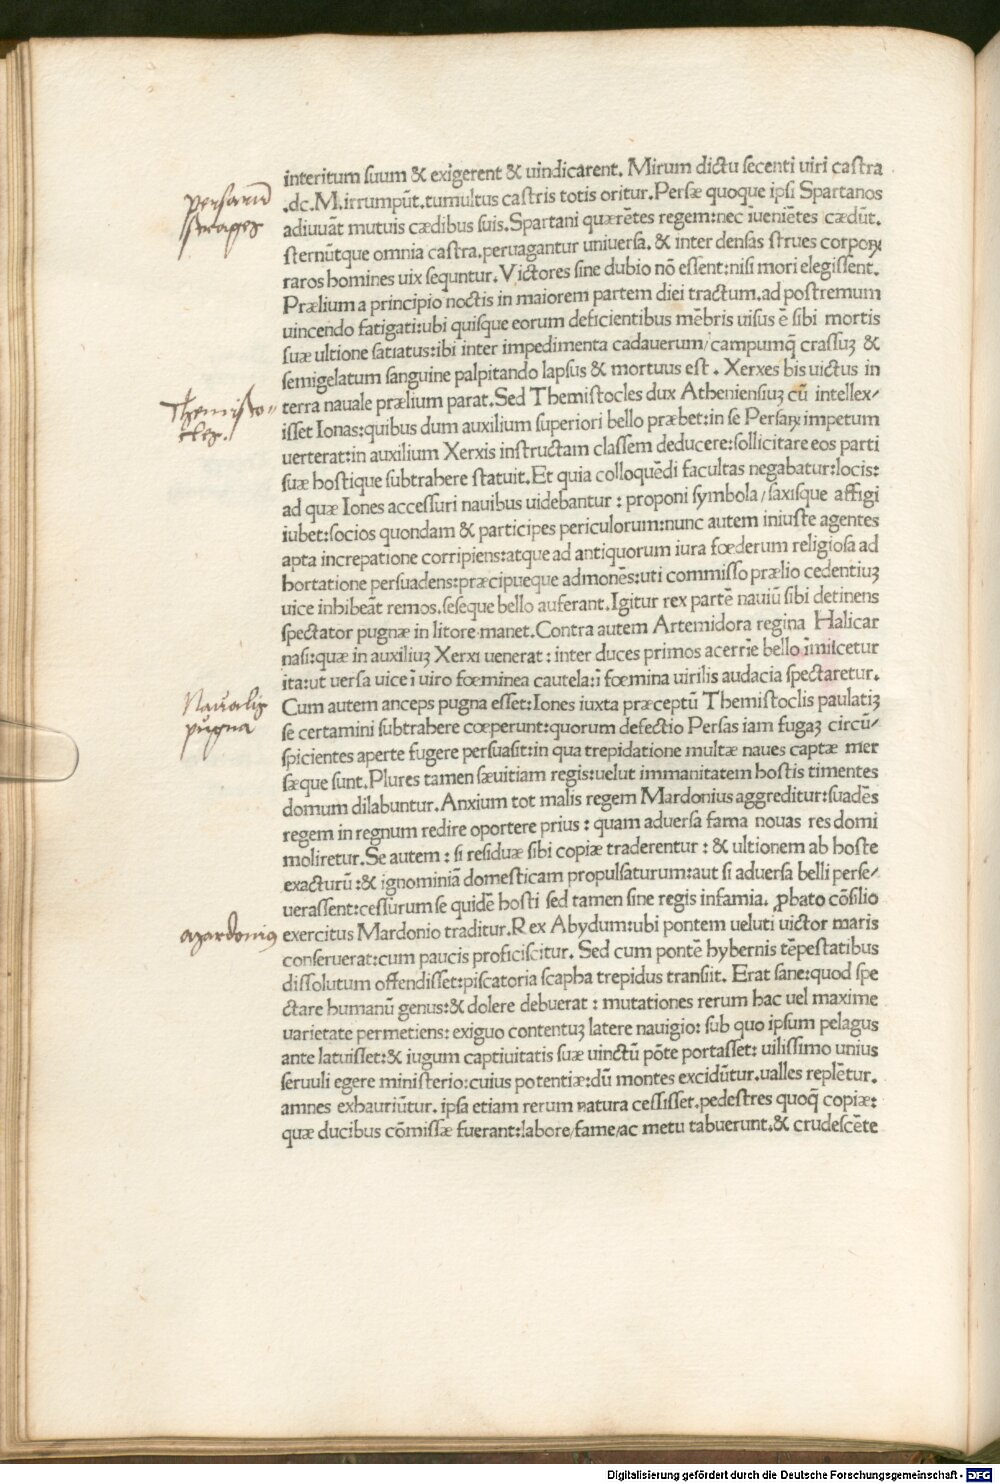 interitum suum & exigerent & uindicarent. Mirum dictu secenti uiri castra
.dc.M.irrumpūt.tumultus castris totis oritur.Persæ quoque ipsi Spartanos
adiuuāt mutuis cædibus suis.Spartani quærētes regem:nec īueniētes cædūt.
sternūtque omnia castra.peruagantur uniuersa.& inter densas strues corpoꝝ
raros homines uix sequntur.Victores sine dubio nō essent:nisi mori elegissent.
Prælium a principio noctis in maiorem partem diei tractum.ad postremum
uincendo fatigati:ubi quisque eorum deficientibus mēbris uisus ē sibi mortis
suæ ultione satiatus:ibi inter impedimenta cadauerum/campumq̄ crassuꝫ &
semigelatum sanguine palpitando lapsus & mortuus est. Xerxes bis uictus in
terra nauale prælium parat.Sed Themistocles dux Atheniensiuꝫ cū intellex/
isset Ionas:quibus dum auxilium superiori bello præbet:in se Persaꝝ impetum
uerterat:in auxilium Xerxis instructam classem deducere:sollicitare eos parti
suæ hostique subtrahere statuit.Et quia colloquēdi facultas negabatur:locis:
ad quæ Iones accessuri nauibus uidebantur : proponi symbola/saxisque affigi
iubet:socios quondam & participes periculorum:nunc autem iniuste agentes
apta increpatione corripiens:atque ad antiquorum iura fœderum religiosa ad
hortatione persuadens:præcipueque admonēs:uti commisso prælio cedentiuꝫ
uice inhibeāt remos.seseque bello auferant.Igitur rex partē nauiū sibi detinens
spectator pugnæ in litore manet.Contra autem Artemidora regina Halicar
nasi:quæ in auxiliuꝫ Xerxi uenerat : inter duces primos acerrīe bello īmiscetur
ita:ut uersa uice ī uiro fœminea cautela:ī fœmina uirilis audacia spectaretur.
Cum autem anceps pugna esset:Iones iuxta præceptū Themistoclis paulatiꝫ
se certamini subtrahere cœperunt:quorum defectio Persas iam fugaꝫ circū/
spicientes aperte fugere persuasit:in qua trepidatione multæ naues captæ mer
sæque sunt.Plures tamen sæuitiam regis:uelut immanitatem hostis timentes
domum dilabuntur.Anxium tot malis regem Mardonius aggreditur:suadēs
regem in regnum redire oportere prius : quam aduersa fama nouas res domi
moliretur.Se autem : si residuæ sibi copiæ traderentur : & ultionem ab hoste
exacturū:& ignominiā domesticam propulsaturum:aut si aduersa belli perse/
uerassent:cessurum se quidē hosti sed tamen sine regis infamia. ꝓbato cōsilio
exercitus Mardonio traditur.Rex Abydum:ubi pontem ueluti uictor maris
conseruerat:cum paucis proficiscitur. Sed cum pontē hybernis tēpestatibus
dissolutum offendisset:piscatoria scapha trepidus transiit. Erat sane:quod spe
ctare humanū genus:& dolere debuerat : mutationes rerum hac uel maxime
uarietate permetiens: exiguo contentuꝫ latere nauigio: sub quo ipsum pelagus
ante latuisset:& iugum captiuitatis suæ uinctū pōte portasset: uilissimo unius
seruuli egere ministerio:cuius potentiæ:dū montes excidūtur.ualles replētur.
amnes exhauriūtur. ipsa etiam rerum natura cessisset.pedestres quoq̄ copiæ:
quæ ducibus cōmissæ fuerant:labore/fame/ac metu tabuerunt.& crudescēte
persarū
strages
Themisto-
cles.
Naualis
pugna
Mardonius
Digitalisierung gefördert durch die Deutsche Forschungsgemeinschaft - DFG